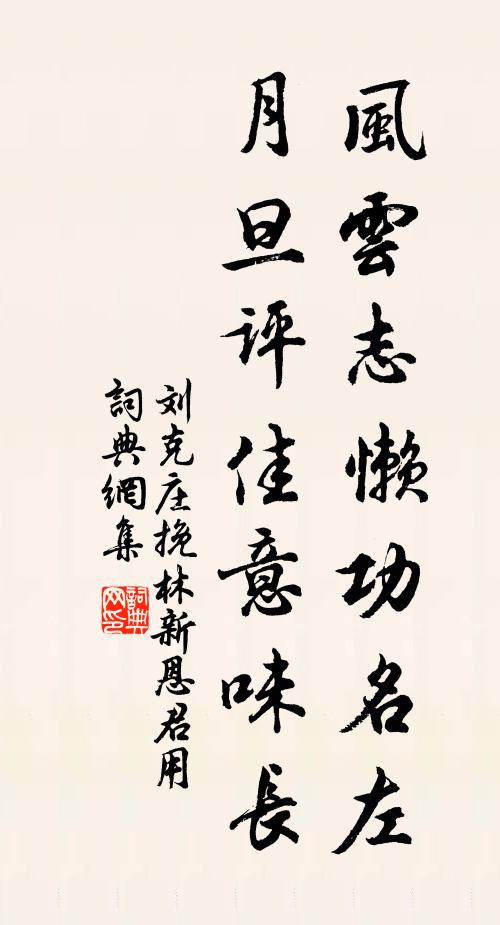 風雲志懶功名左
月旦評佳意味長
刘克庄挽林新恩君用
詞典網集
詞典网印